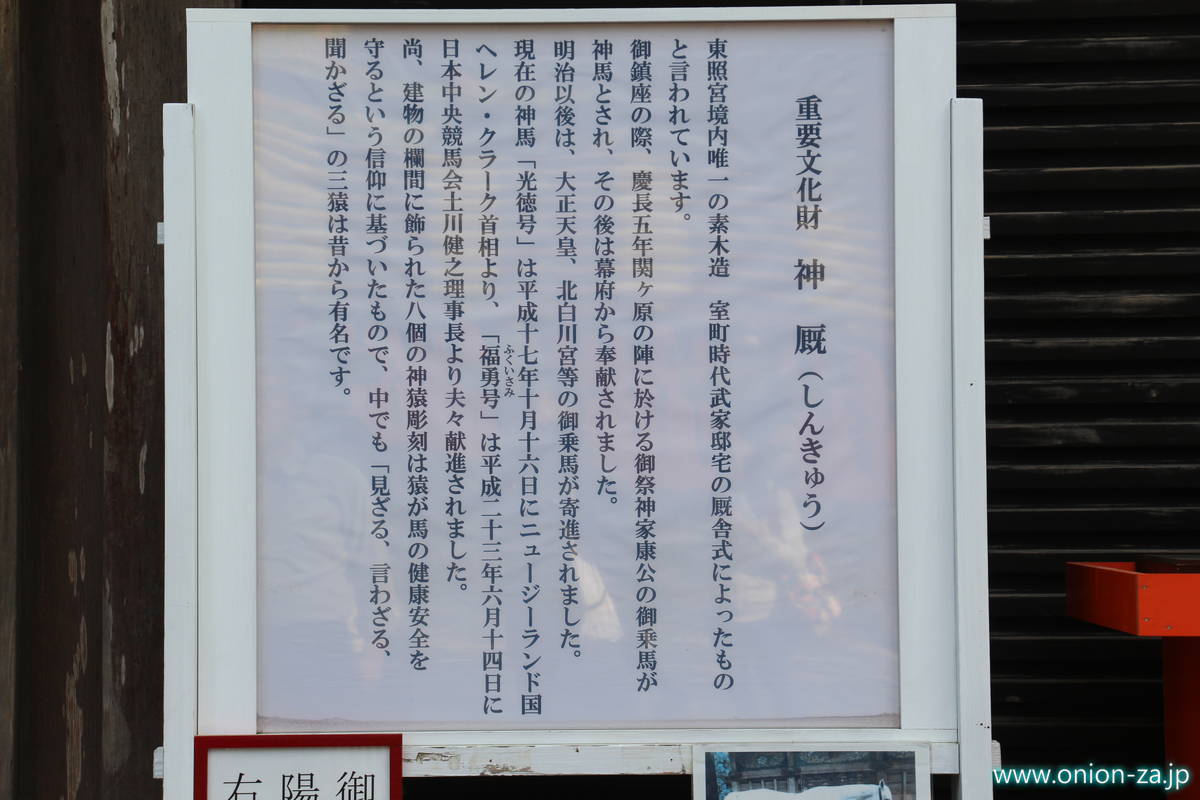 重要文化財　神　厩（しんきゅう）
東照宮境内唯一の素木造　室町時代武家邸宅の厩舎式によったもの
と言われています。
御鎮座の際、慶長五年関ヶ原の陣に於ける御祭神家康公の御乗馬が
神馬とされ、その後は幕府から奉献されました。
明治以後は、大正天皇、北白川宮等の御乗馬が寄進されました。
現在の神馬「光徳号」は平成十七年十月十六日にニュージーランド国
ヘレン・クラーク首相より、「福勇号」は平成二十三年六月十四日に
ふくいさみ
日本中央競馬会土川健之理事長より夫々献進されました。
尚、建物の欄間に飾られた八個の神猿彫刻は猿が馬の健康安全を
守るという信仰に基づいたもので、中でも「見ざる、言わざる、
聞かざる」の三猿は昔から有名です。
御
陽
右
www.onion-za.jp